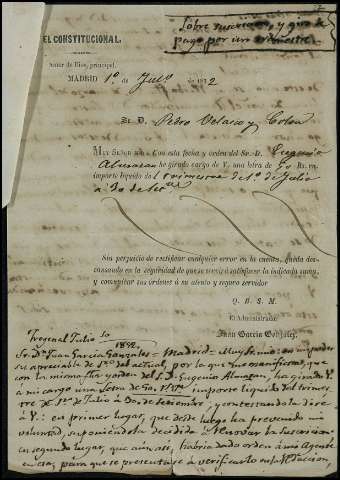 Sobre suscricion, y que se
pago por un trimestre.
EL CONSTITUCIONAL.
Amor de Dios, principal.
MADRID 1º de Julio de 1872
Sr. D. Pedro Velasco y Colon
MUY SEÑOR MIO: Con esta fecha y orden del Sr. D. Eugenio
Almazan he girado cargo de V. una letra de 50 Rs. vn.
importe líquido del trimestre de 1º de Julio
a 30 de Set.
Sin perjuicio de rectificar cualquier error en la cuenta, queda descansando en la seguridad de que se servirá satisfacer la indicada suma,
y comunicar sus órdenes á su atento y seguro servidor
Q. B. S. M.
El Administrador
Juan García Gonzalez.
Julio 10
1872.
Sr. Dn. Juan García Gonzalez = Madrid = Muy Sr. mio: en mi poder
su apreciable de 1º del actual, por la que me manifiesta, que
con la misma fha y orden del S. D. Eugenio Almazan, ha girado V.
a mi cargo una letra de 50 rs. vn. importe líquido del trimes-
tre de 1º de Julio á 30 de Setiembre, y contestandola diré
á V.: en primer lugar, que desde luego ha prevenido mi
voluntad, suponiendola decidida á renovar la suscricion:
en segundo lugar, que aun asi, habria dado orden á mi Agente
en esa, para que se presentase á verificarlo en esa Redaccion,